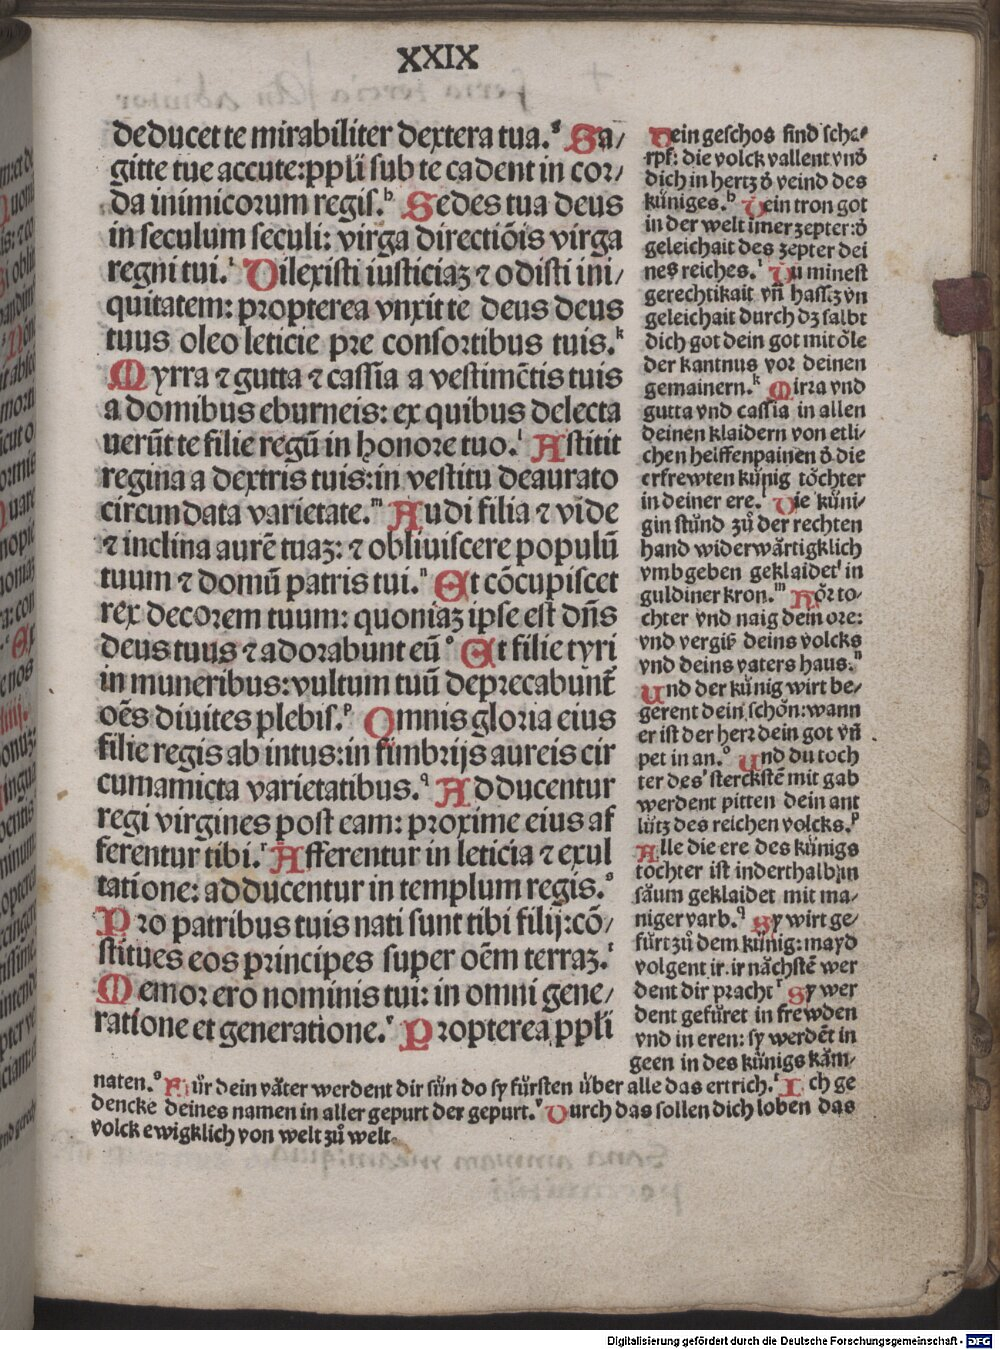 XXIX
deducet te mirabiliter dextera tua.ᵍ Sa/
gitte tue accute:ppl̄i sub te cadent in cor/
da inimicorum regis.ʰ Sedes tua deus
in seculum seculi: virga directiōis virga
regni tui.ⁱ Dilexisti iusticiaꝫ ⁊ odisti ini/
quitatem: propterea vnxit te deus deus
tuus oleo leticie pre consortibus tuis.ᵏ
Myrra ⁊ gutta ⁊ cassia a vestimētis tuis
a domibus eburneis: ex quibus delecta
uerūt te filie regū in honore tuo.ˡ Astitit
regina a dextris tuis:in vestitu deaurato
circundata varietate.ᵐ Audi filia ⁊ vide
⁊ inclina aurē tuaꝫ: ⁊ obliuiscere populū
tuum ⁊ domū patris tui.ⁿ Et cōcupiscet
rex decorem tuum: quoniaꝫ ipse est dn̄s
deus tuus ⁊ adorabunt eū ᵒ Et filie tyri
in muneribus:vultum tuū deprecabunt̄
oēs diuites plebis.ᵖ Omnis gloria eius
filie regis ab intus:in fimbrijs aureis cir
cumamicta varietatibus.ꟴ Adducentur
regi virgines post eam: proxime eius af
ferentur tibi.ʳ Afferentur in leticia ⁊ exul
tatione: adducentur in templum regis.ˢ
Pro patribus tuis nati sunt tibi filij:cō/
stitues eos principes super oēm terraꝫ.ᵗ
Memor ero nominis tui: in omni gene/
ratione et generatione.ᵛ Propterea ppl̄i
Dein geschos sind scha/
rpf: die volck vallent vnd̄
dich in hertz d̄ veind des
küniges.ʰ Dein tron got
in der welt im̄er zepter:d̄
geleichait des zepter dei
nes reiches.ⁱ Du minest
gerechtikait vn̄ hassꝫ vn
geleichait durch dꝫ salbt
dich got dein got mit öle
der kantnus vor deinen
gemainern.ᵏ Mirra vnd
gutta vnd cassia in allen
deinen klaidern von etli/
chen helffenpainen d̄ die
erfrewten künig töchter
in deiner ere.ˡ Die küni/
gin stůnd zů der rechten
hand widerwärtigklich
vmbgeben geklaidet in
guldiner kron.ᵐ Hör to/
chter vnd naig dein ore:
vnd vergiß deins volcks
vnd deins vaters haus.ⁿ
Und der künig wirt be/
gerent dein schön:wann
er ist der herr dein got vn̄
pet in an.ᵒ Und du toch
ter des sterckstē mit gab
werdent pitten dein ant
lütz des reichen volcks.ᵖ
Alle die ere des künigs
tochter ist inderthalb:in
säum geklaidet mit ma/
niger varb.ꟴ Sy wirt ge/
fürt zů dem künig: mayd
volgent ir. ir nächstē wer
dent dir pracht ʳ Sy wer
dent gefüret in frewden
vnd in eren: sy werdēt in
geen in des künigs kam/
naten.ˢ Für dein väter werdent dir sün do sy fürsten über alle das ertrich.ᵗ Ich ge
dencke deines namen in aller gepurt der gepurt.ᵛ Durch das sollen dich loben das
volck ewigklich von welt zů welt.
Digitalisierung gefördert durch die Deutsche Forschungsgemeinschaft - DFG